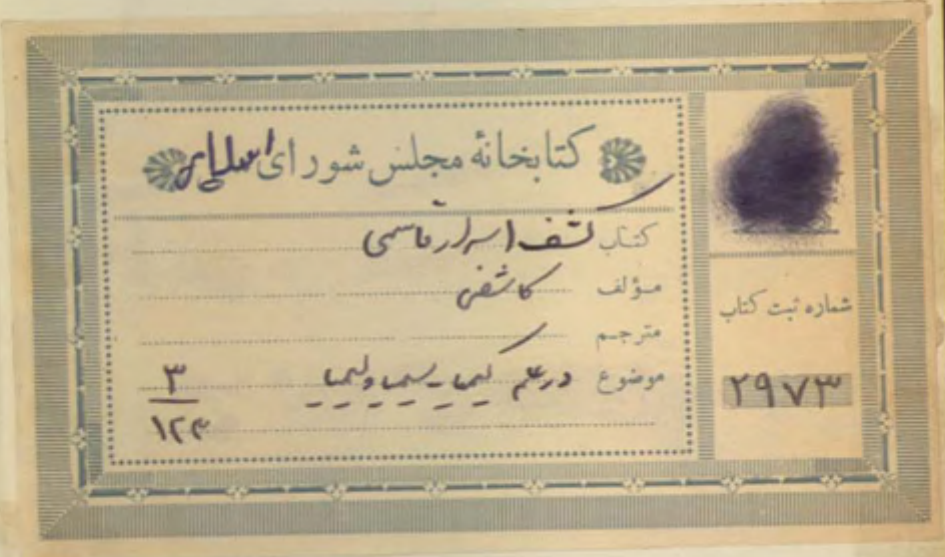 کتابخانهٔ مجلس شورای اسلامی
کتاب کشف اسرار قاسمی
مؤلف کاشفی
مترجم
موضوع در علم کیمیا سیمیا و لیمیا
۳
۱۲۴
شماره ثبت کتاب
۲۹۷۳